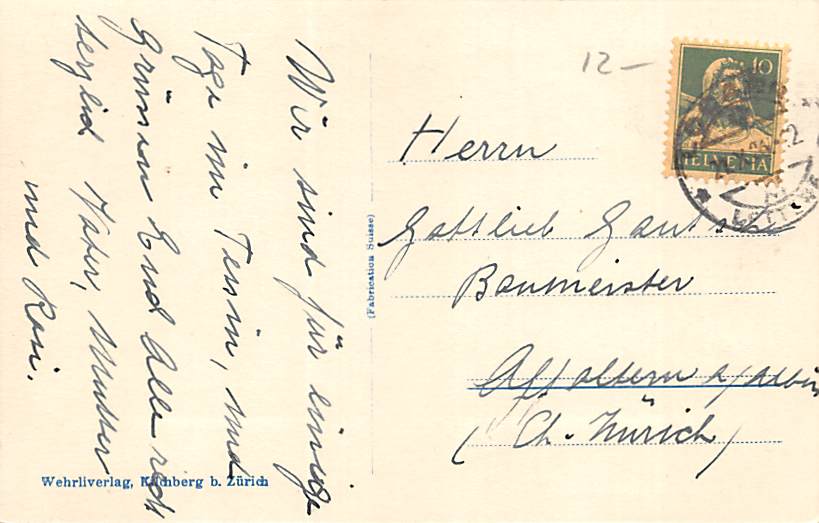 Wir sind für einige
Tage im Tessin, und
Grüssen Euch Alle recht
herzlich Vater, Mutter
und Rosi.
12 –
10
HELVETIA
Herrn
Gottlieb
Baumeister
Affoltern a/Albis
(Ch. Zürich)
(Fabrication Suisse)
Wehrliverlag, Kilchberg b. Zürich